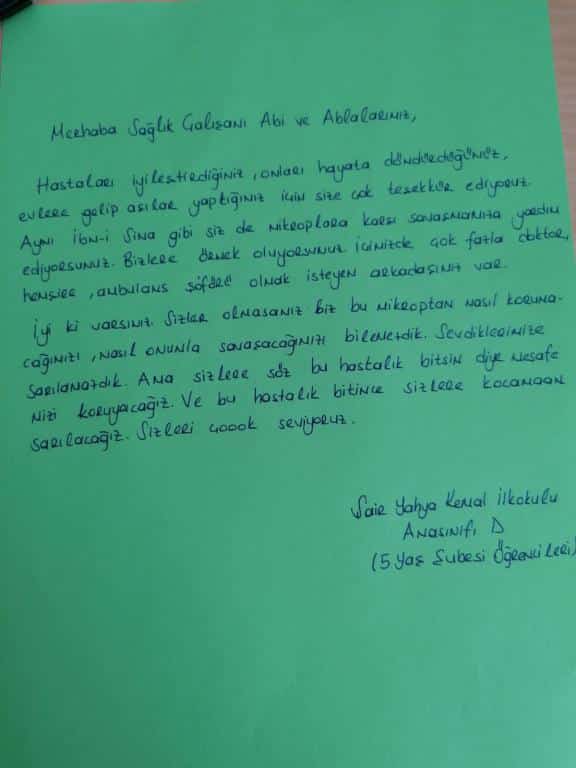 Merhaba Sağlık Çalışanı Abi ve Ablalarımız,
Hastaları iyileştirdiğiniz, onları hayata döndürdüğünüz,
evlere gelip aşılar yaptığınız için size çok teşekkür ediyoruz.
Aynı İbn-i Sina gibi siz de mikroplara karşı savaşmamıza yardım
ediyorsunuz. Bizlere örnek oluyorsunuz. İçimizde çok fazla doktor,
hemşire, ambulans şöförü olmak isteyen arkadaşımız var.
İyi ki varsınız. Sizler olmasanız biz bu mikroptan nasıl koruna-
cağımızı, nasıl onunla savaşacağımızı bilemezdik. Sevdiklerimize
sarılamazdık. Ama sizlere söz bu hastalık bitsin diye mesafe
mizi koruyacağız. Ve bu hastalık bitince sizlere kocamaan
sarılacağız. Sizleri çoook seviyoruz.
Şair Yahya Kemal İlkokulu
Anasınıfı D
(5 Yaş Şubesi Öğrencileri)